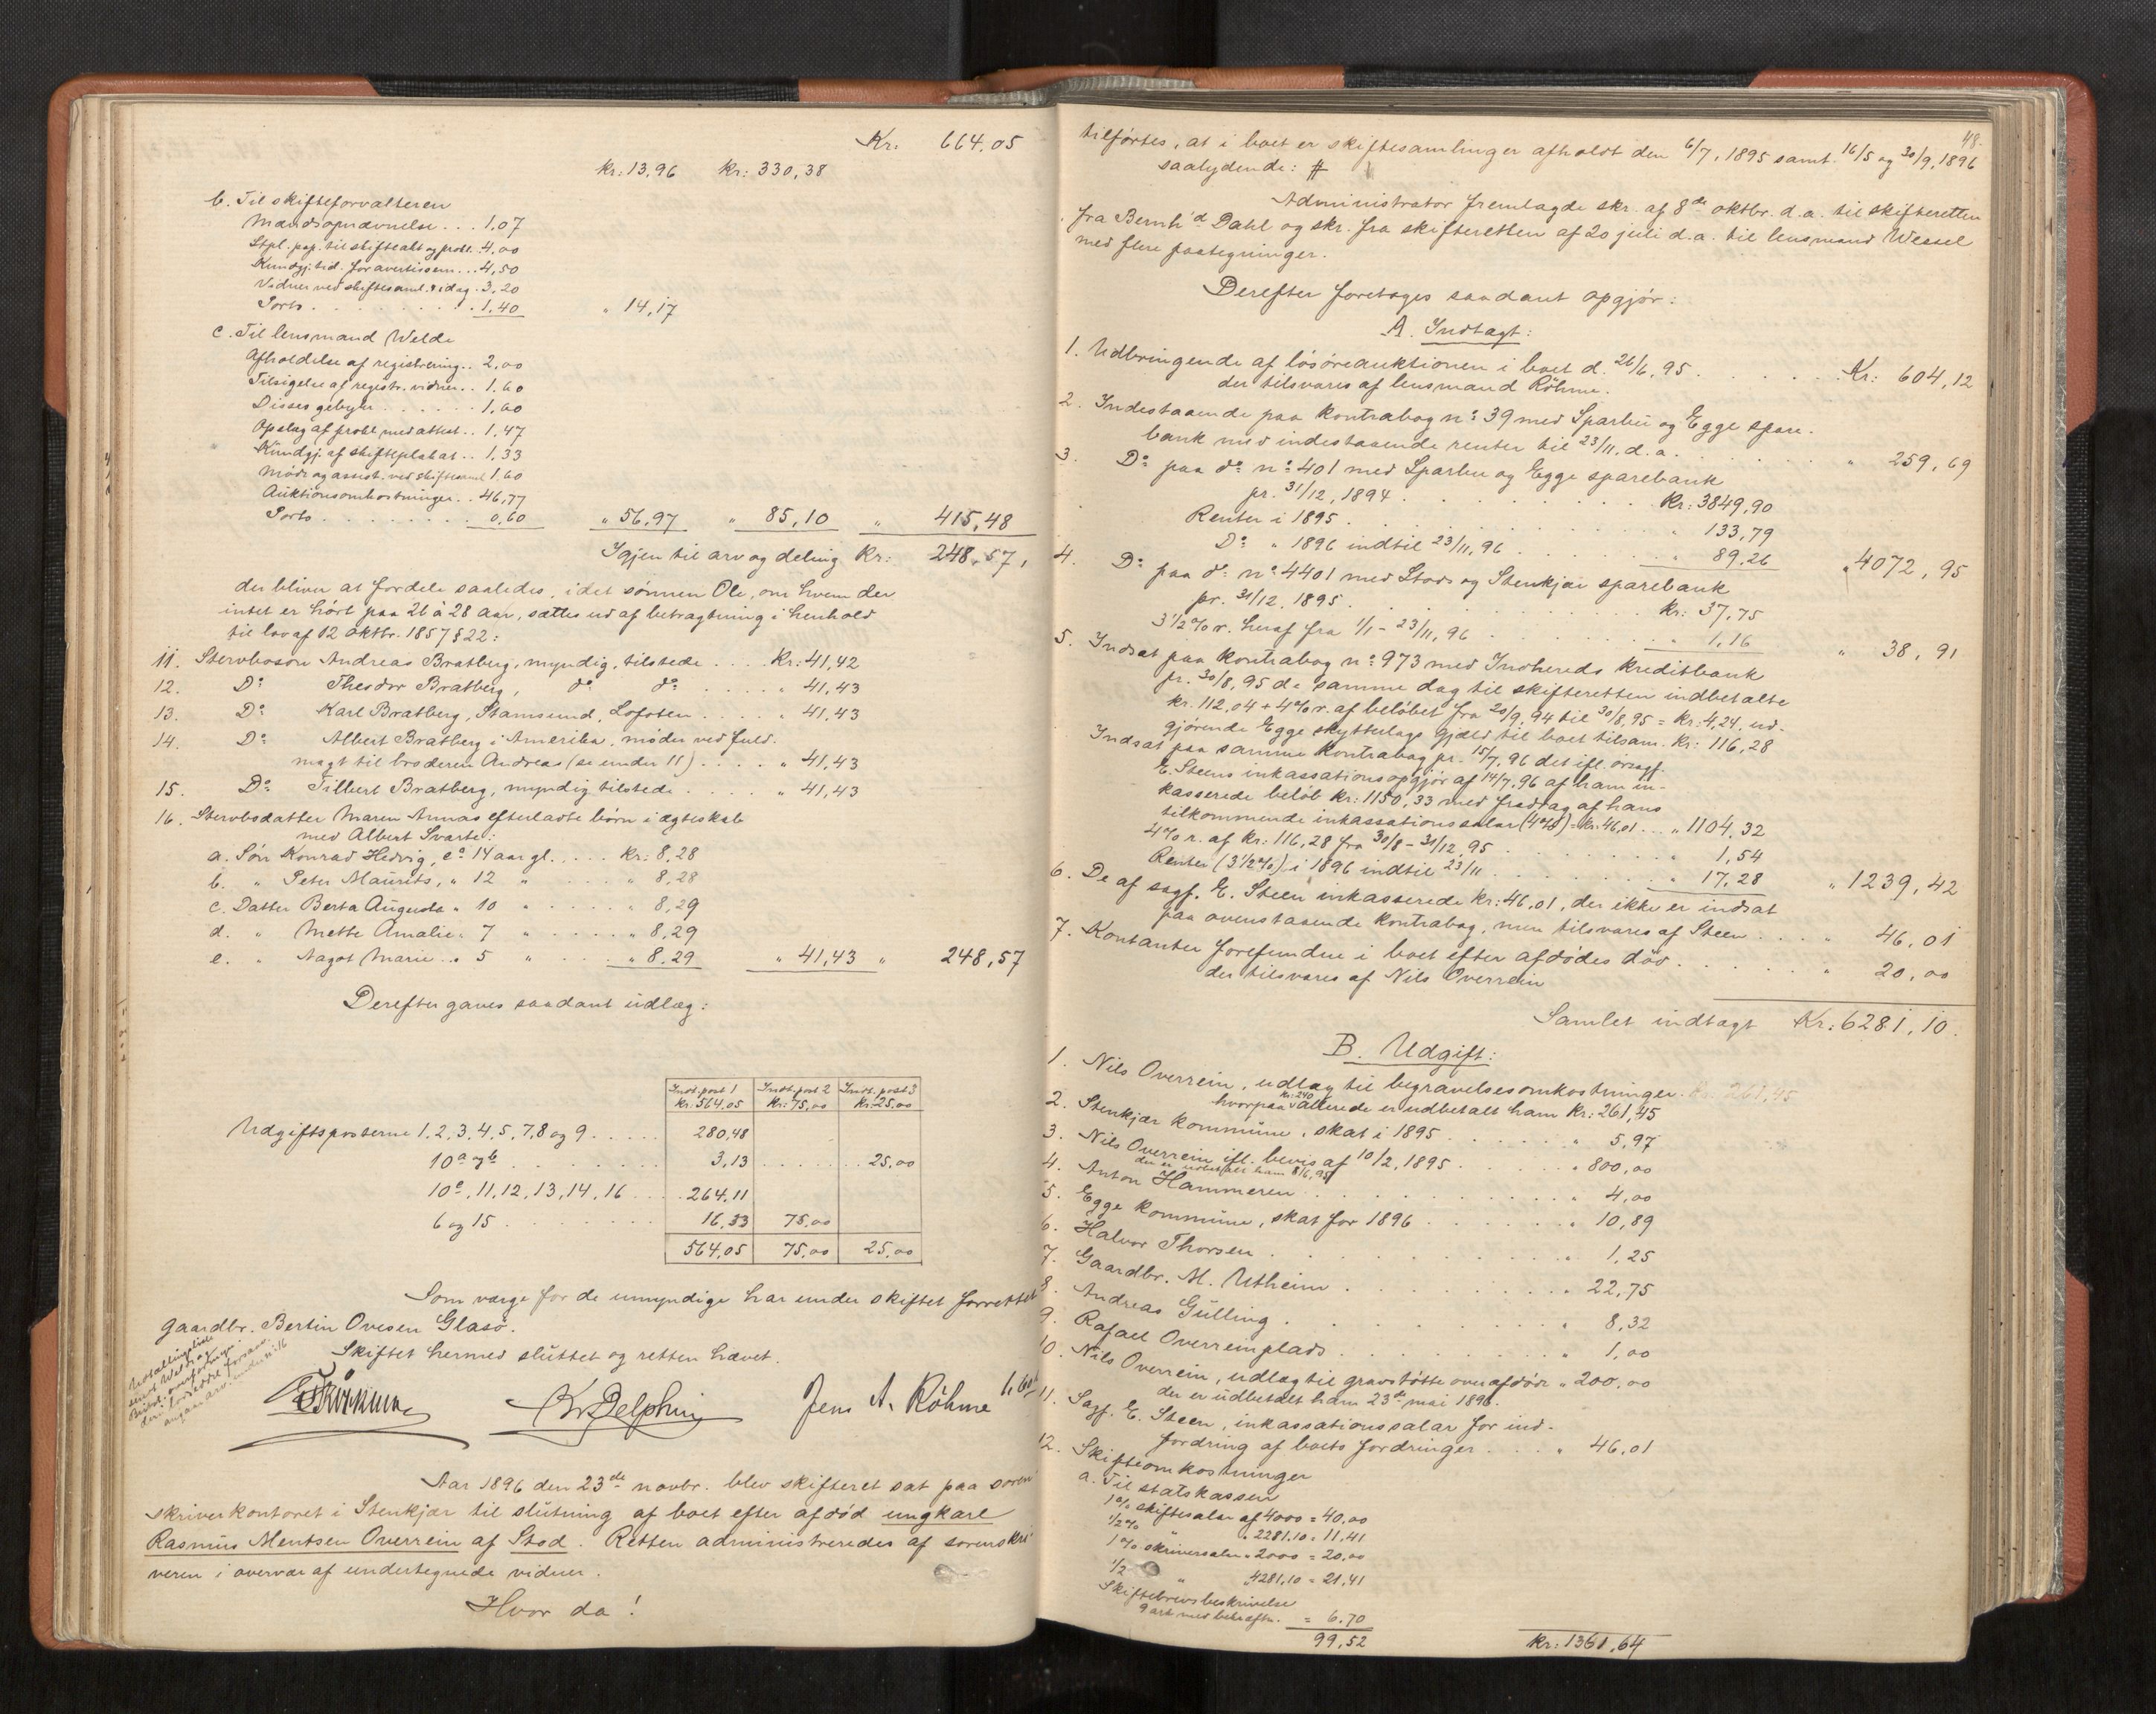 Kr: 664.05
kr: 13,96 kr: 330,38
b. Til skifteforvalteren
Mandsopnævnelse . . . 1,07
Stpl. pap. til skifteakt og protk. 4,00
Kundgj. tid. for avertissem . . . 4,50
Vidner ved skiftesaml. & idag . 3,20
Porto . . . . . . 1,40 " 14,17
c. Til lensmand Welde
Afholdelse af registrering . . 2,00
Tilsigelse af registr. vidner . . 1,60
Disses gebyr . . . . . . 1,60
Opslag af prokl. med attest . . 1,47
Kundgj. af skifteplakat . . 1,33
Møde og assist. ved skiftesaml 1,60
Auktionsomkostninger . . 46,77
Porto . . . . . . . . 0,60 " 56,97 " 85,10 " 415,48
Igjen til arv og deling Kr: 248,57,
der bliver at fordele saaledes, idet sønnen Ole, om hvem der
intet er hørt paa 26 à 28 aar, sættes ud af betragtning i henhold
til lov af 12 oktbr. 1857 § 22:
11. Stervbosøn Andreas Bratberg, myndig, tilstede . . . . Kr: 41,42
12. Do Theodor Bratberg, do do . . . . . " 41,43
13. Do Karl Bratberg, Stamsund, Lofoten . . . . " 41,43
14. Do Albert Bratberg i Amerika, møder ved fuld-
magt til broderen Andreas (se under 11) . . . . . " 41,43
15. Do Tilbert Bratberg, myndig tilstede . . . . " 41,43
16. Stervbodatter Maren Annas efterladte børn i ægteskab
med Albert Svarte:
a. Søn Konrad Hedvig, ca 14 aar gl. . . . . kr: 8,28
b. " Peter Maurits, " 12 " . . . . " 8,28
c. Datter Berta Augusta " 10 " . . . . " 8,29
d. " Mette Amalie " 7 " . . . . " 8,29
e. " Nagot Marie . " 5 " . . . " 8,29 " 41,43 " 248,57
Derefter gaves saadant udlæg:
Indt. post 1 Indt. post 2 Indt. post 3
kr. 564.05 kr: 75,00 kr: 25,00
Udgiftsposterne 1, 2, 3, 4, 5, 7, 8 og 9 . . . . . 280,48
10a og b . . . . . . . . 3,13 . . . . . . . 25,00
10c, 11, 12, 13, 14, 16 . . . . 264,11
6 og 15 . . . . . . . . 16,33 75,00
564,05 75,00 25,00
Som værge for de umyndige har under skiftet forrettet
gaardbr. Bertin Ovesen Glasø.
Skiftet hermed sluttet og retten hævet.
Jens A. Röhme
Aar 1896 den 23de novbr. blev skifteret sat paa soren-
skriverkontoret i Stenkjær til slutning af boet efter afdød ungkarl
Rasmus Mentsen Overrein af Stod. Retten administreredes af sorenskri-
veren i overvær af undertegnede vidner.
Hvor da!
48.
tilførtes, at i boet er skiftesamlinger afholdt den 6/7, 1895 samt 16/5 og 30/9, 1896
saalydende: #
Administrator fremlagde skr. af 8de oktbr. d.a. til skifteretten
fra Bernh'd Dahl og skr. fra skifteretten af 20 juli d.a. til lensmand Wessel
med flere paategninger.
Derefter foretoges saadant opgjør:
A. Indtægt:
1. Udbringende af løsøreauktionen i boet d. 26/6, 95 . . . . . . Kr: 604,12
der tilsvares af lensmand Röhme.
2. Indestaaende paa kontrabog no 39 med Sparbu og Egge spare-
bank med indestaaende renter til 23/11, d.a. . . . . . . " 259,69
3. Do paa do no 401 med Sparbu og Egge sparebank
pr. 31/12, 1894 . . . . . . . . Kr: 3849,90
Renter i 1895 . . . . . . . . " 133,79
Do " 1896 indtil 23/11, 96 . . . . " 89,26 " 4072,95
4. Do paa do no 4401 med Stods og Stenkjær sparebank
pr. 31/12, 1895 . . . . . . . . kr: 37,75
3 1/2 % r. heraf fra 1/1 - 23/11, 96 . . . . " 1,16 " 38,91
5. Indsat paa kontrabog no 973 med Indhereds kreditbank
pr. 30/8, 95 de samme dag til skifteretten indbetalte
kr. 112,04 + 4% r. af beløbet fra 20/9, 94 til 30/8, 95 = kr: 4,24, ud-
gjørende Egge skytterlags gjæld til boet tilsam. Kr: 116,28
Indsat paa samme kontrabog pr. 15/7, 96 det ifl. ovsagf.
E. Steens inkassationsopgjør af 14/7, 96 af ham in-
kasserede beløb kr: 1150,33 med fradrag af hans
tilkommende inkassationssalar (4%) = kr: 46,01 . . . " 1104,32
4% r. af kr: 116,28 fra 30/8 - 31/12, 95 . . . . . " 1,54
Renter (3 1/2 %) i 1896 indtil 23/11 . . . . . " 17,28 " 1239,42
6. De af sagf. E. Steen inkasserede kr: 46,01, der ikke er indsat
paa ovenstaaende kontrabog, men tilsvares af Steen . . . . " 46,01
7. Kontanter forefundne i boet efter afdødes død . . . . . . " 20,00
der tilsvares af Nils Overrein
Samlet indtægt Kr: 6281,10.
B. Udgift:
1. Nils Overrein, udlæg til begravelsesomkostninger.
hvorpaa kr: 240 allerede er udbetalt ham kr: 261,45
2. Stenkjær kommune, skat i 1895 . . . . . . " 5,97
3. Nils Overrein ifl. bevis af 10/2, 1895 . . . . " 800,00
der er udbetalt ham 8/6, 95
4. Anton Hammeren . . . . . . . . " 4,00
5. Egge kommune, skat for 1896 . . . . . . " 10,89
6. Halvor Thorsen . . . . . . . . " 1,25
7. Gaardbr. M. Utheim . . . . . . . " 22,75
8. Andreas Gulling . . . . . . . . " 8,32
9. Rafael Overreinplads . . . . . . . " 1,00
10. Nils Overrein, udlæg til gravstøtte over afdøde " 200,00
der er udbetalt ham 23de mai 1896.
11. Sagf. E. Steen, inkassationssalar for ind-
fordring af boets fordringer . . . . " 46,01
12. Skifteomkostninger
a. Til statskassen
1% skiftesalær af 4000 = 40,00
1/2 % " " 2281.10 = 11,41
1% skriversalær " 2000 = 20,00
1/2 " " 4281,10 = 21,41
Skiftebrevsbeskrivelse
9 ark med bekræftn. = 6.70
99,52 kr: 1361,64